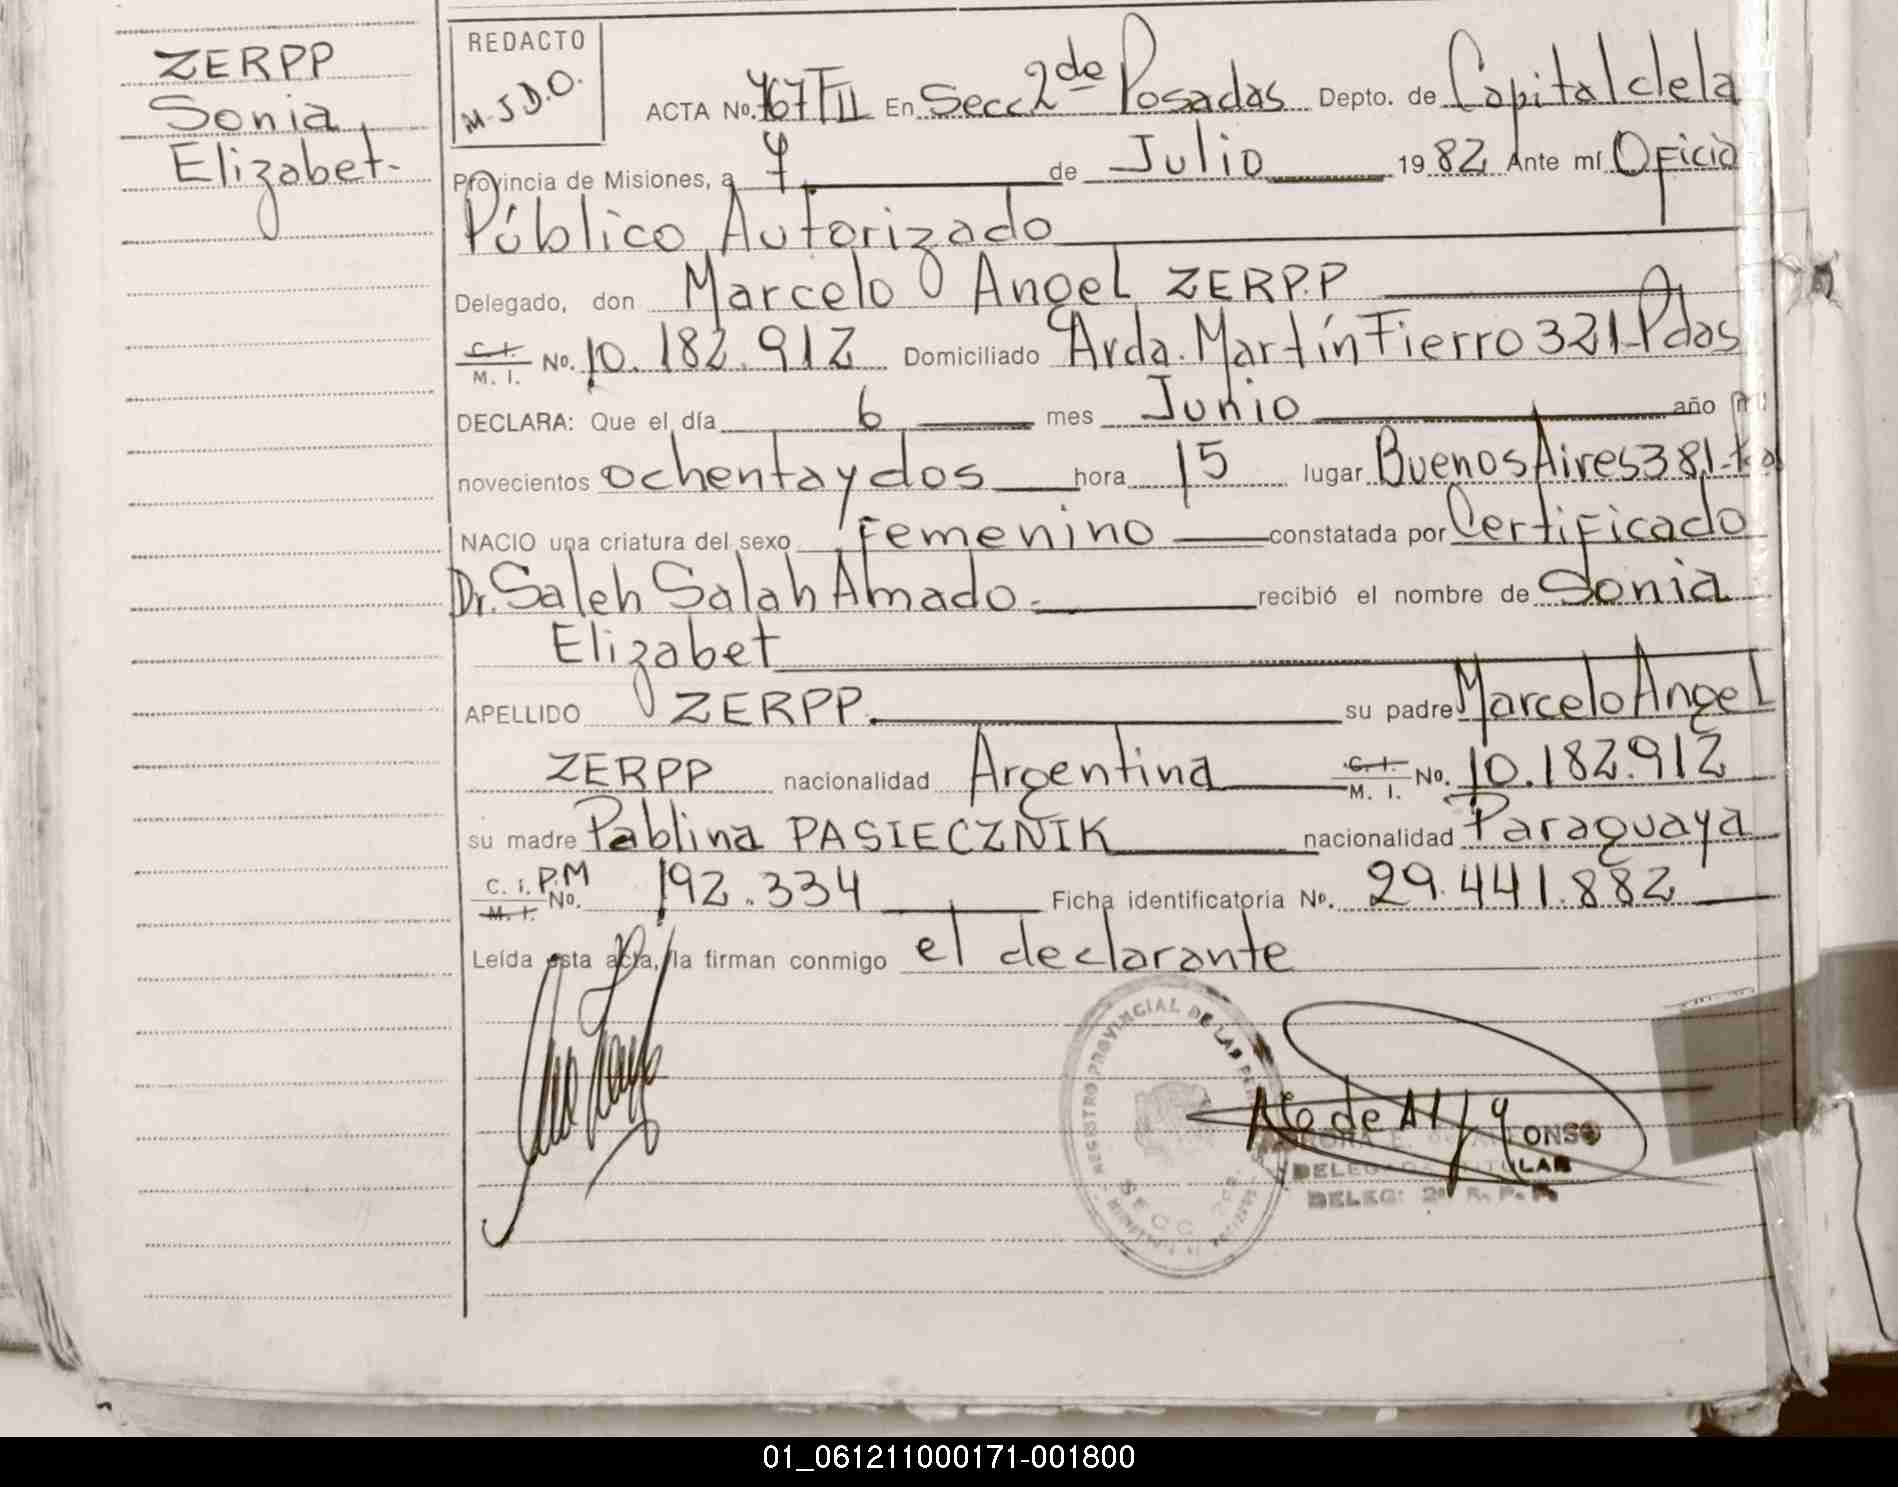 ZERPP
Sonia
Elizabet-
REDACTO
M.J.D.O.
ACTA No. 767 TII En Secc 2de Posadas Depto. de Capital de la
Provincia de Misiones, a 7 de Julio 1982 Ante mí Oficia
Público Autorizado
Delegado, don Marcelo Angel ZERPP
C. I. M. I. No. 10.182.912 Domiciliado Avda. Martín Fierro 321-Pdas
DECLARA: Que el día 6 mes Junio año
novecientos ochenta y dos hora 15 lugar Buenos Aires 381-
NACIO una criatura del sexo Femenino constatada por Certificado
Dr. Saleh Salah Amado.- recibió el nombre de Sonia
Elizabet
APELLIDO ZERPP. su padre Marcelo Angel
ZERPP nacionalidad Argentina C. I. M. I. No. 10.182.912
su madre Pablina PASIECZNIK nacionalidad Paraguaya
C. I. P.M M. I. No. 192.334 Ficha identificatoria No. 29.441.882
Leída esta acta, la firman conmigo el declarante
REGISTRO PROVINCIAL DE LAS
SECC. 2da.
DELEGADA TITULAR
DELEG: 2a R. P. P.
01_061211000171-001800